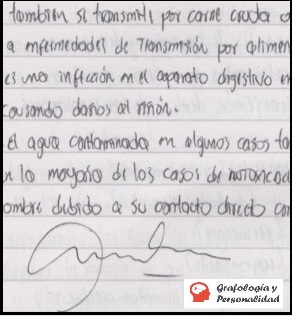 también se transmite por carne cruda o
a enfermedades de Transmisión por alimen
es una infección en el aparato digestivo en
causando daños al riñón.
el agua contaminada en algunos casos ta
n la mayoría de los casos de
ombre debido a su contacto directo con
Grafología y
Personalidad